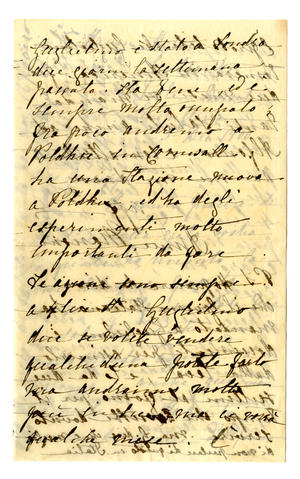 Guglielmo è stato a Londra
due giorni la settimana
passata. Sta bene, ed è
sempre molto occupato
fra poco andremo a
Poldhu in Cornwall,
ha una stazione nuova
a Poldhu, ed ha degli
esperimenti molto
importanti da fare.
Le azioni sono sempre
a Guglielmo
dice se volete vendere
qualcheduna potete farlo
ma andranno molto
più in su ma ci vorrà
qualche mese.